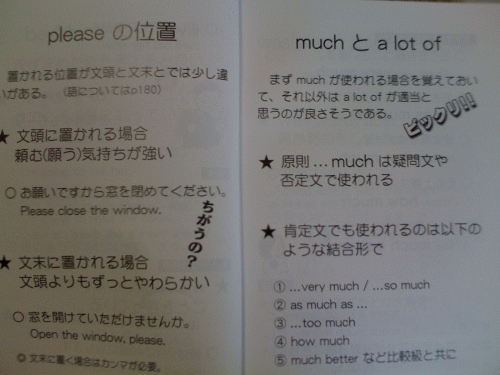 please の位置
置かれる位置が文頭と文末とでは少し違
いがある。(語についてはp180)
★ 文頭に置かれる場合
頼む(願う)気持ちが強い
○ お願いですから窓を閉めてください。
Please close the window.
ちがうの?
★ 文末に置かれる場合
文頭よりもずっとやわらかい
○ 窓を開けていただけませんか。
Open the window, please.
◎ 文末に置く場合はカンマが必要。
much と a lot of
まず much が使われる場合を覚えておい
て、それ以外は a lot of が適当と
思うのが良さそうである。
ビックリ!!
★ 原則 … much は疑問文や
否定文で使われる
★ 肯定文でも使われるのは以下の
ような結合形で
① …very much / …so much
② as much as …
③ …too much
④ how much
⑤ much better など比較級と共に